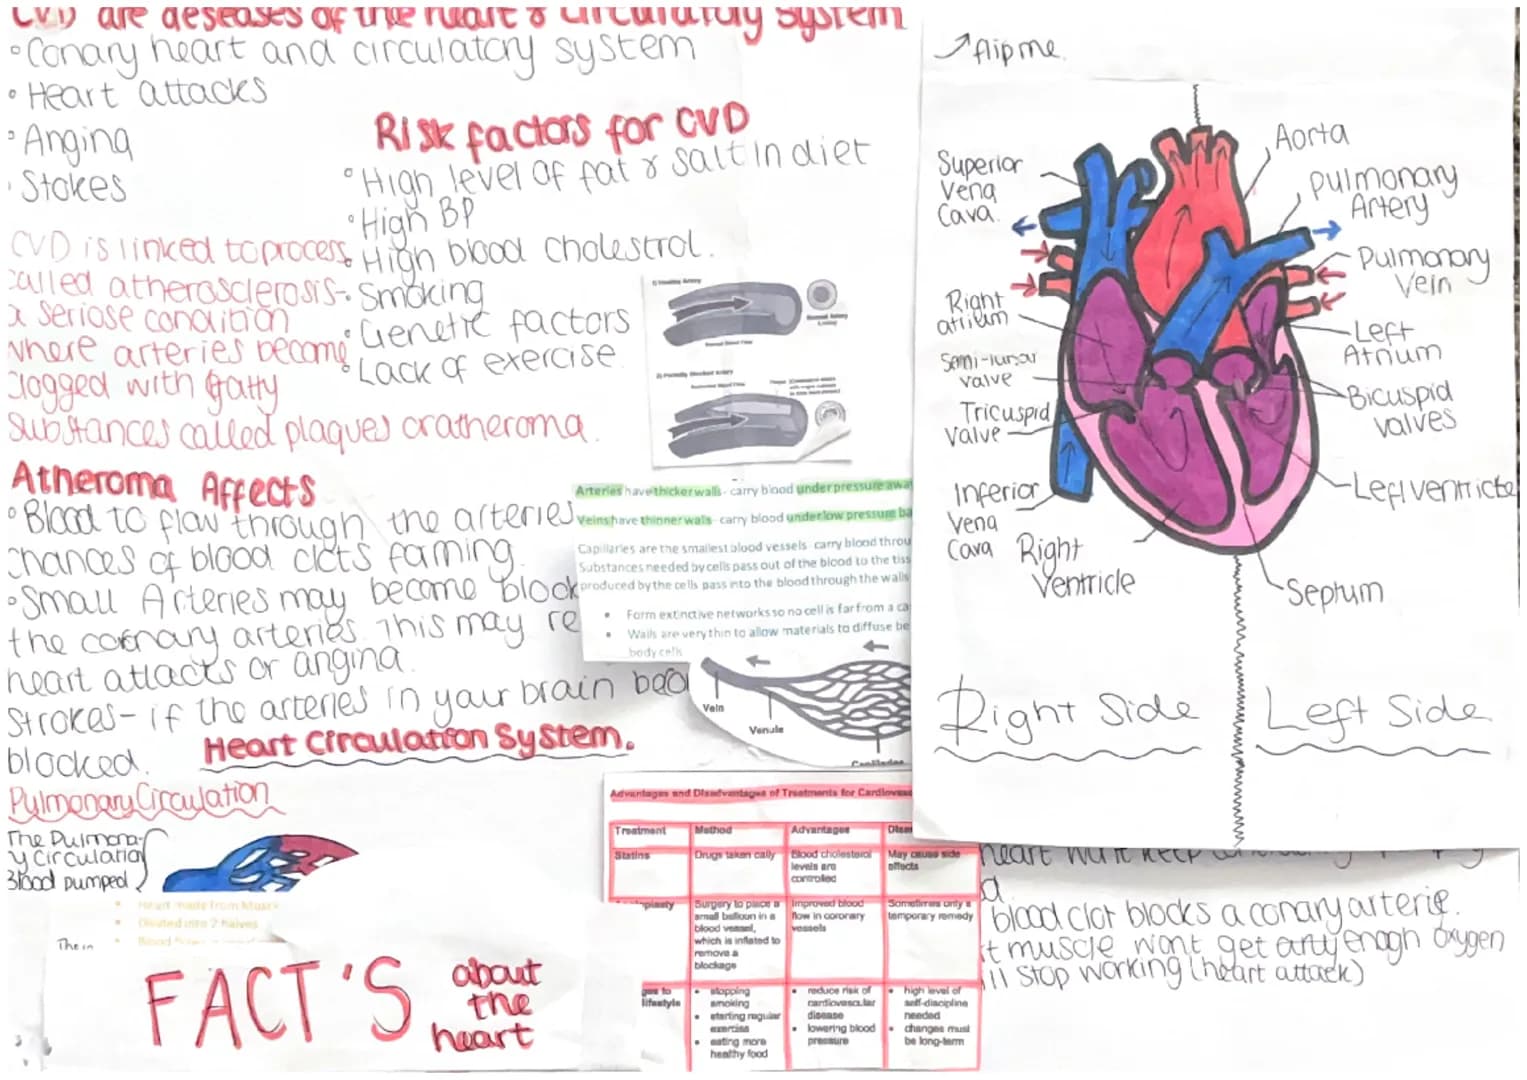 CVD are deseases of the heart & circulatory System
° Conary heart and circulatory system
° Heart attacks
° Anging
° Stokes
CVD is linked to process
called atherosclerosis-
a seriose condition
where arteries become
clogged with fatty
substances called plaques or atheroma.
Risk factors for CVD
° High level of fat & salt in diet
° High BP
° High blood cholestrol.
° Smoking
° Genetic factors
° Lack of exercise.
1) Healthy Artery
Normal Artery
Lining
Normal Blood Flow
2) Partially Blocked Artery
Atheroma Affects
° Blood to flow through the arteries
chances of blood clots forming.
° Small Arteries may become block
the coronary arteries. This may re
heart attacks or angina.
Strokes- if the arteries in your brain beco
blocked.
Arteries have thicker walls - carry blood under pressure awa
Veins have thinner walls - carry blood under low pressure ba
Capillaries are the smallest blood vessels - carry blood throu
Substances needed by cells pass out of the blood to the tiss
produced by the cells pass into the blood through the walls
• Form extinctive networks so no cell is far from a ca
• Walls are very thin to allow materials to diffuse be
body cells
Vein
Venule
Capillaries
Heart Circulation System.
Pulmonary Circulation
The Pulmona-
y Circulation
Blood pumped
• Heart made from Muscl
• Divided into 2 halves
• Blood
The
FACT'S about
the
heart
Advantages and Disadvantages of Treatments for Cardiovas
Treatment Method Advantages Disa
Statins Drugs taken daily Blood cholesterol
levels are
controlled May cause side
effects
plasty Surgery to place a
small balloon in a
blood vessel,
which is inflated to
remove a
blockage Improved blood
flow in coronary
vessels Sometimes only a
temporary remedy
ges to
lifestyle • stopping
smoking
• starting regular
exercise
• eating more
healthy food • reduce risk of
cardiovascular
disease
• lowering blood
pressure • high level of
self-discipline
needed
• changes must
be long-term
flip me.
Superior
Vena
Cava.
Aorta
Pulmonary
Artery
Pulmonary
Vein
Right
atrium
Semi-lunar
valve
Tricuspid
Valve
Left
Atrium
Bicuspid
valves
Inferior
Vena
Cava
Right
Ventricle
Left ventricle
Septum
Right Side
Left Side
heart won't keep
d.
blood clot blocks a conary arterie.
t muscle wont get any enogh oxygen
ll stop working (heart attack)